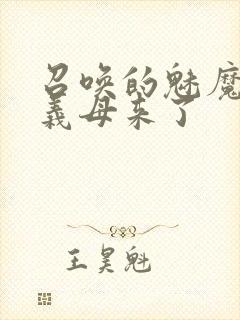 召唤的魅魔
义母来了
王昊魁